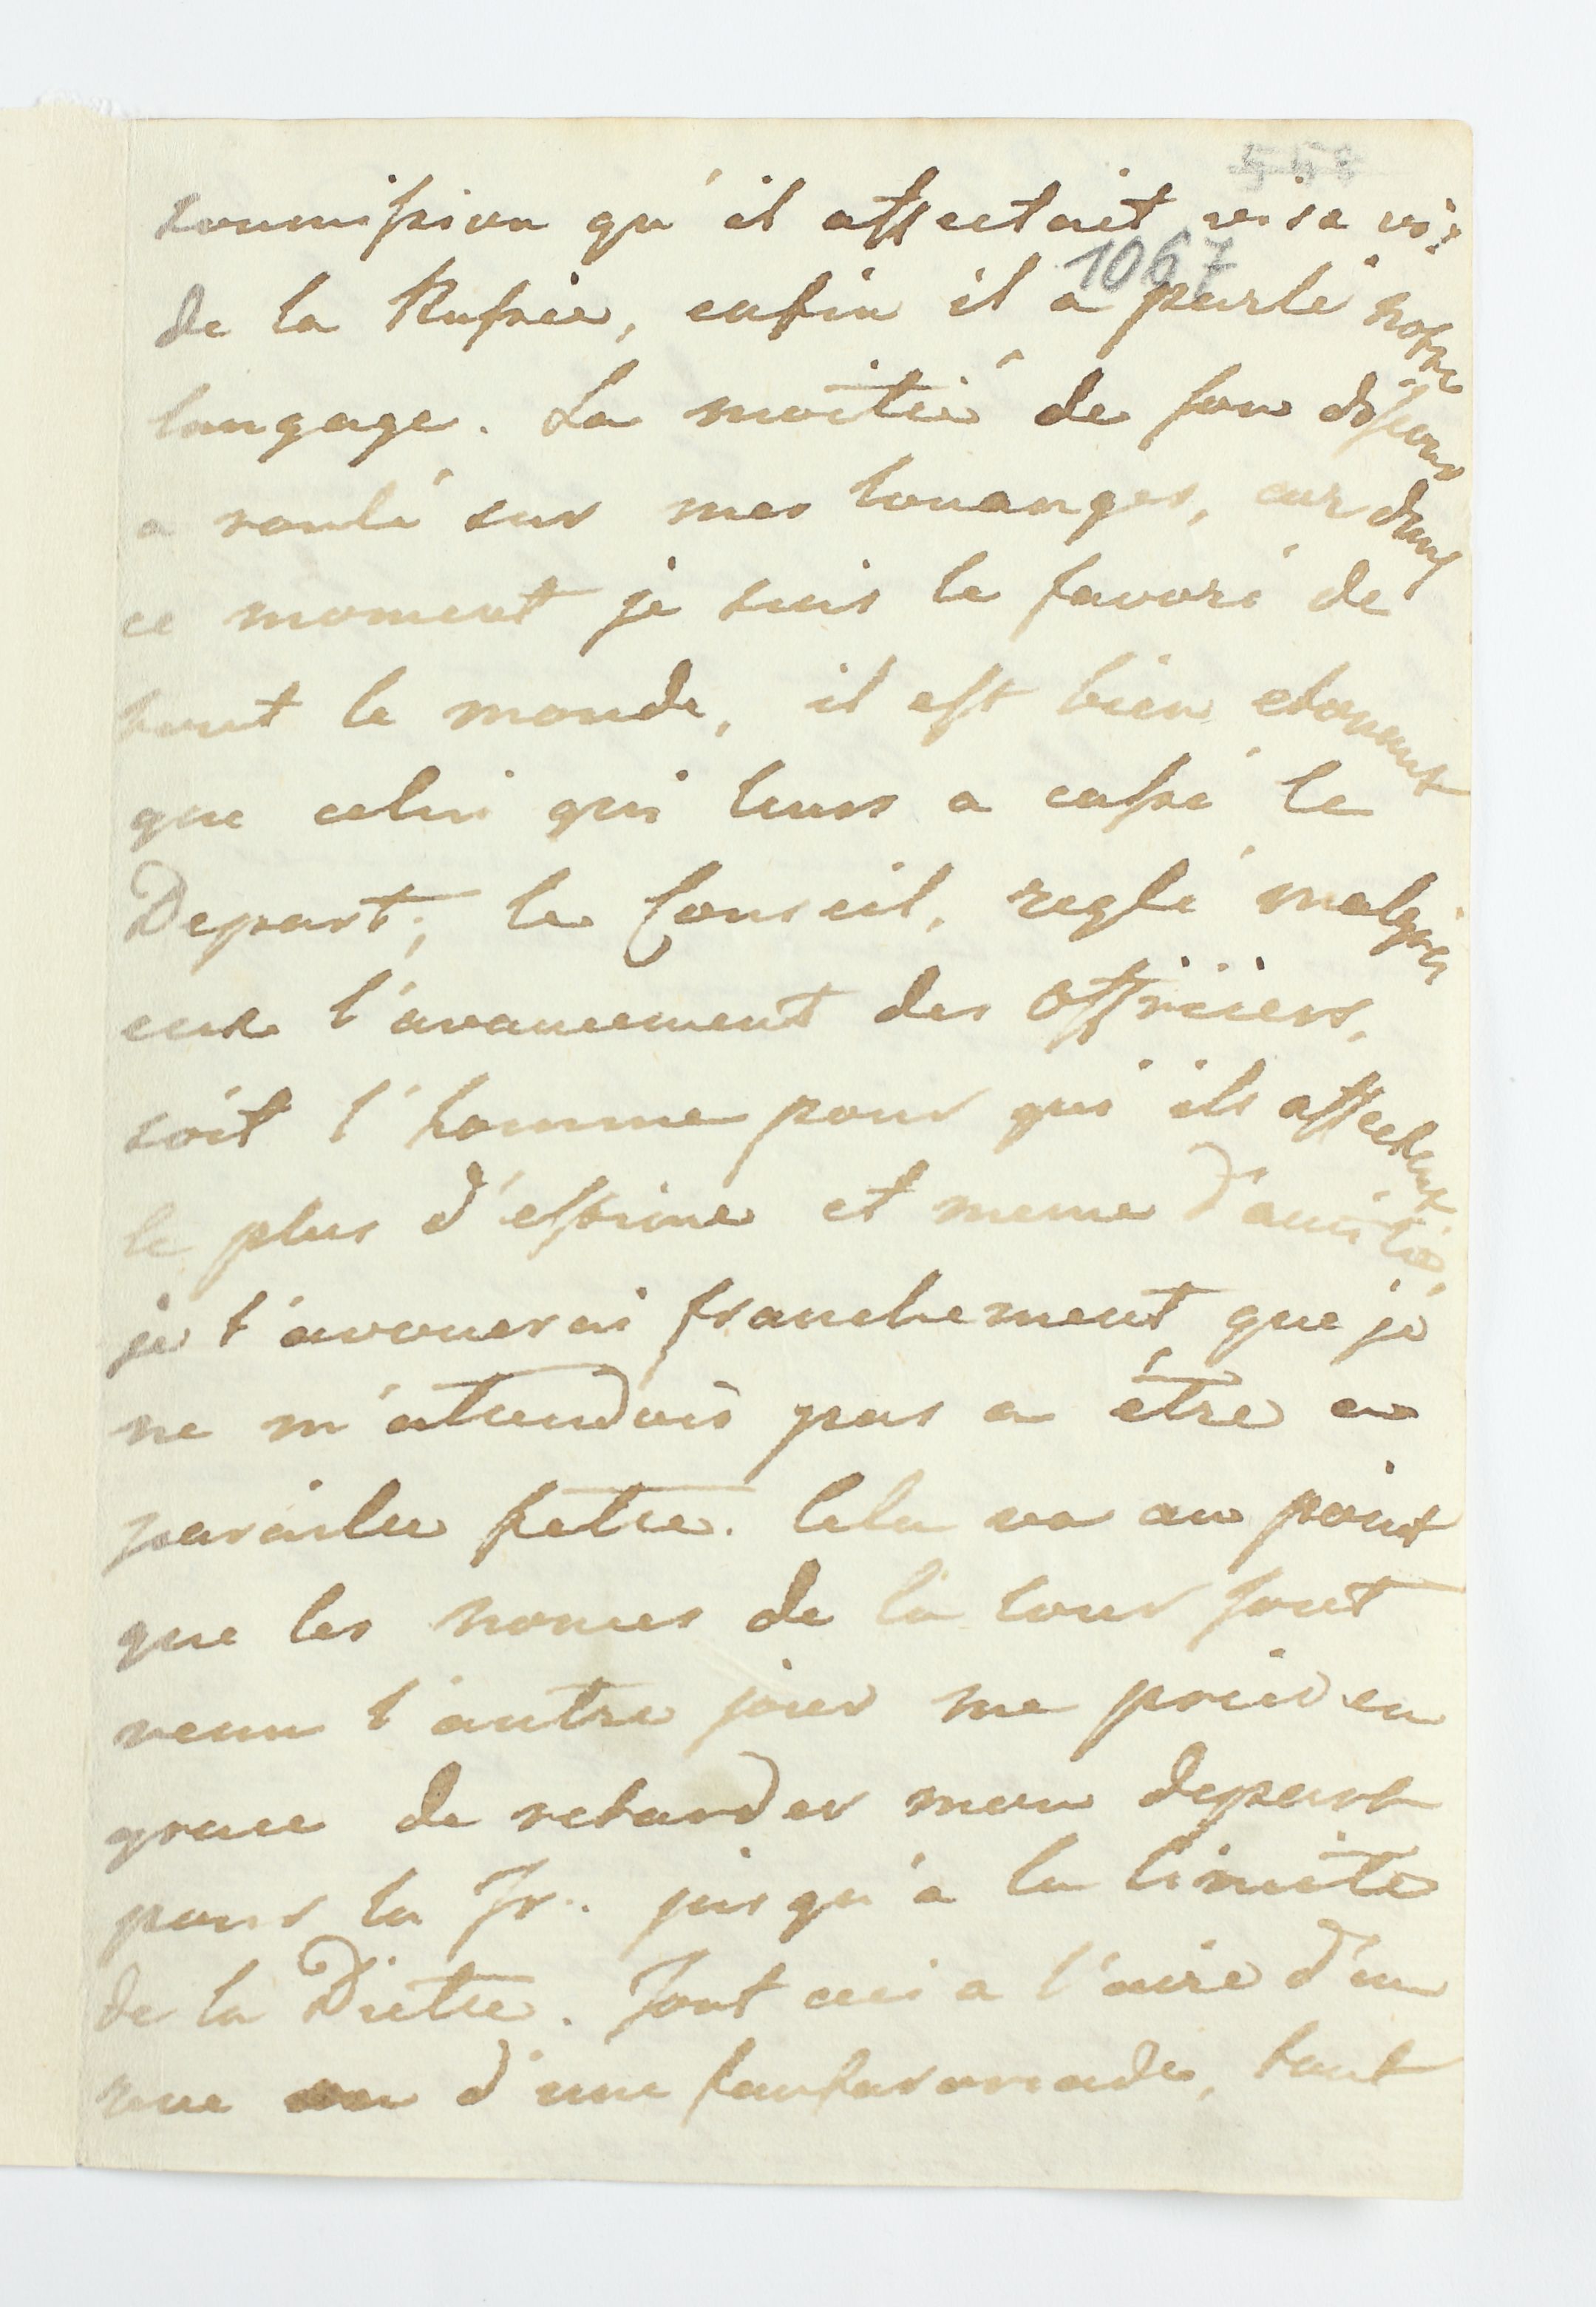 558
soumission qu'il affectait vis a vis
1067
de la Russie, enfin il a parlé notre
langage. La moitié de son discours
a roulé sur mes louanges, car dans
ce moment je suis le favori de
tout le monde, il est bien etonnant
que celui qui leurs a cassé le
Depart; le Conseil, reglé malgré
eux l'avancement des officiers,
soit l'homme pour qui ils affectent
le plus d'estime et meme d'amitié,
je t'avouerai franchement que je
ne m'attendois pas a être a
pareille fette. Cela va au point
que les nonces de la cour sont
venu l'autre jour me prier en
grace de retarder mon depart
pour la Fr. jusqu'à la limite
de la Diette. Tout ceci a l'aire d'un
d'une fanfaronade, tant